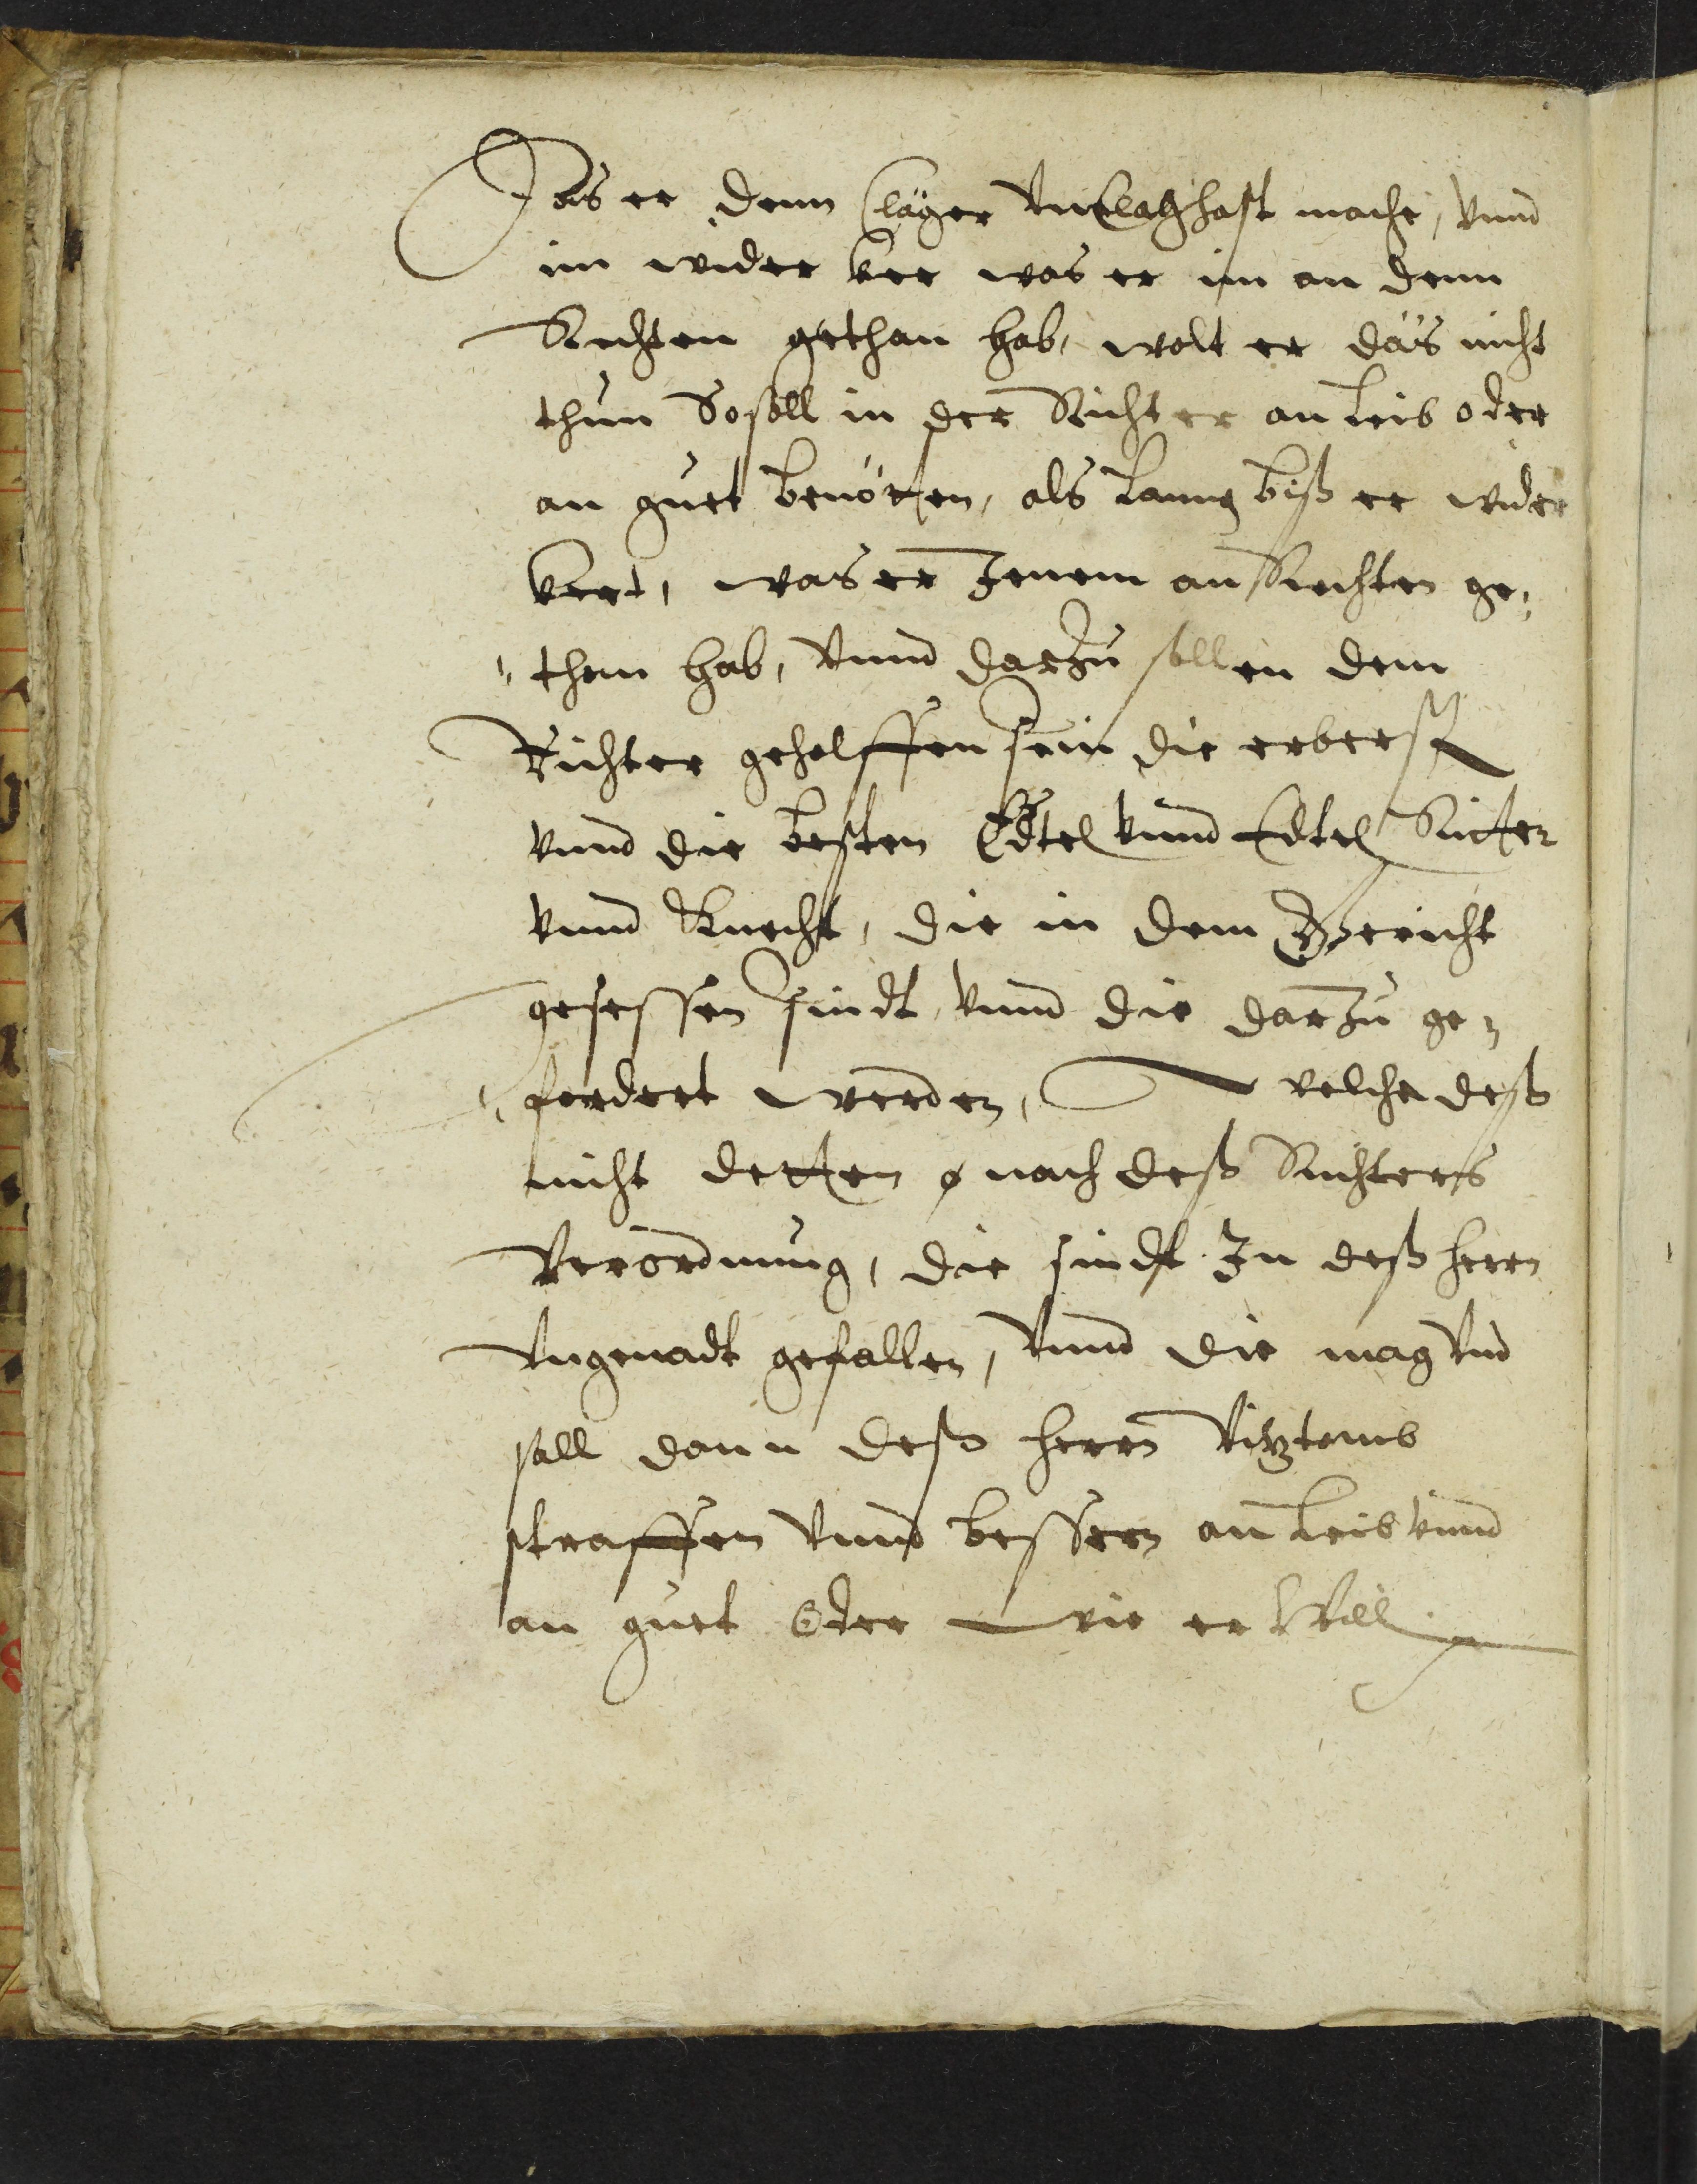 Das er denn Cläger Unclaghaft mache, vnnd
im wider ker was er im an denn
Rechten gethan hab, wolt er däs nicht
thun So soll in der Richter an leib oder
an guet benötten, als lanng biß er wider
kert, was er Jenem an Rechten ge¸
¸than hab, Vnnd darzu sollen dem
Richter geholffen sein die erberst
vnnd die besten Edtel vnnd Edtel Ritter
vnnd Knecht, die in dem Gericht
gesessen sindt, vnnd die darzu ge¸
¸fordert werden, welche deß
nicht detten nach deß Richters
Verordnung, die sindt In deß herrn
Vngenadt gefallen, Vnnd die mag Vnd
soll dann deß herrn Vitztomb
straffen Vnnd bessern an leib vnnd
an guet Oder wie er Will